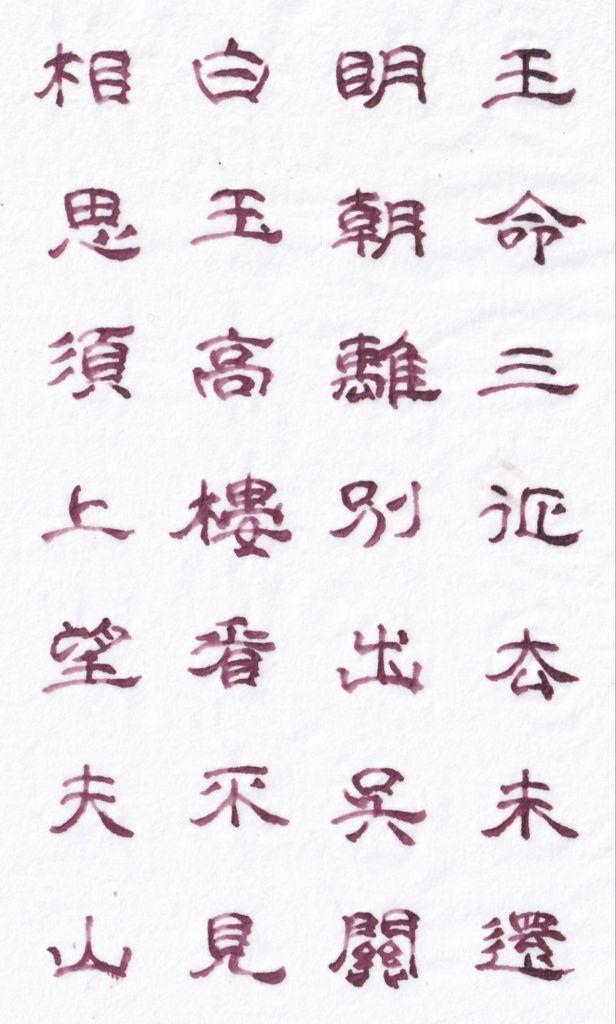 王命三征去未還
明朝離別出吳關
白玉高樓看不見
相思須上望夫山